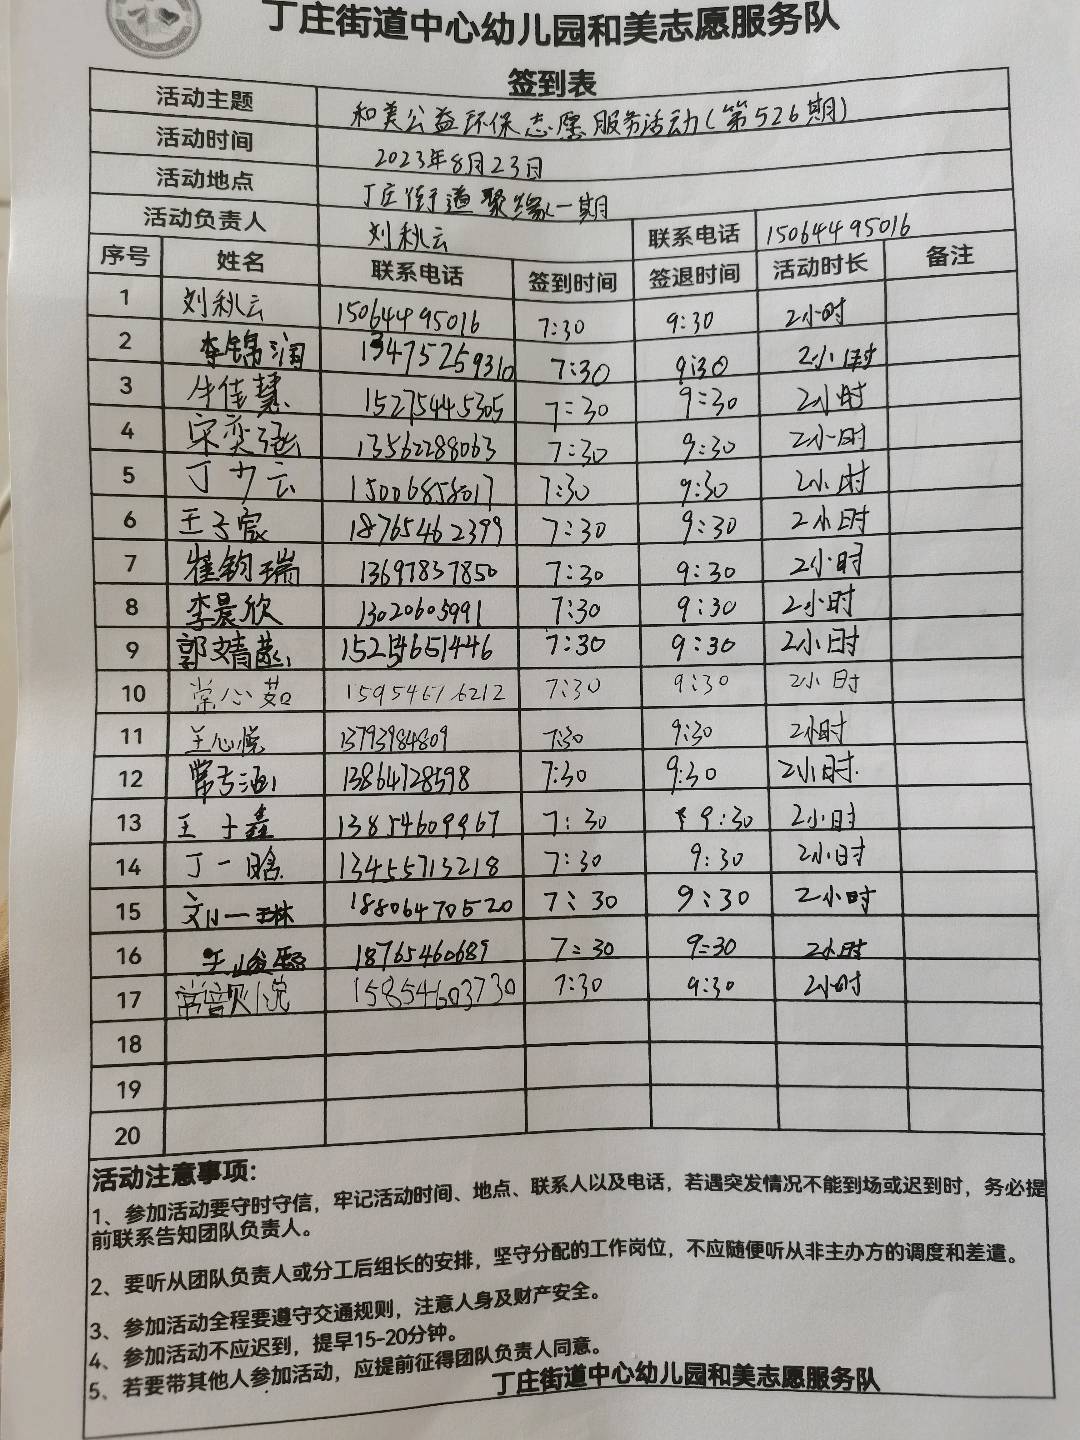 丁庄街道中心幼儿园和美志愿服务队
签到表
活动主题 和美公益环保志愿服务活动(第526期)
活动时间 2023年8月23日
活动地点 丁庄街道聚缘一期
活动负责人 刘秋云 联系电话 15064495016
序号 姓名 联系电话 签到时间 签退时间 活动时长 备注
1 刘秋云 15064495016 7:30 9:30 2小时
2 李锦润 13475259310 7:30 9:30 2小时
3 牛佳慧 15275445305 7:30 9:30 2小时
4 宋奕 13562288063 7:30 9:30 2小时
5 丁少云 15006858017 7:30 9:30 2小时
6 王子宸 18765462399 7:30 9:30 2小时
7 崔钧瑞 13697837850 7:30 9:30 2小时
8 李晨欣 13020605991 7:30 9:30 2小时
9 郭婧 7:30 9:30 2小时
10 常心茹 15954616212 7:30 9:30 2小时
11 王心悦 13793984809 7:30 9:30 2小时
12 常 涵 13864728598 7:30 9:30 2小时
13 王子鑫 13854609967 7:30 9:30 2小时
14 丁一晗 13455713218 7:30 9:30 2小时
15 刘一琳 18806470520 7:30 9:30 2小时
16 王峻熙 18765460689 7:30 9:30 2小时
17 常 15854603730 7:30 9:30 2小时
18
19
20
活动注意事项:
1、参加活动要守时守信，牢记活动时间、地点、联系人以及电话，若遇突发情况不能到场或迟到时，务必提
前联系告知团队负责人。
2、要听从团队负责人或分工后组长的安排，坚守分配的工作岗位，不应随便听从非主办方的调度和差遣。
3、参加活动全程要遵守交通规则，注意人身及财产安全。
4、参加活动不应迟到，提早15-20分钟。
5、若要带其他人参加活动，应提前征得团队负责人同意。
丁庄街道中心幼儿园和美志愿服务队